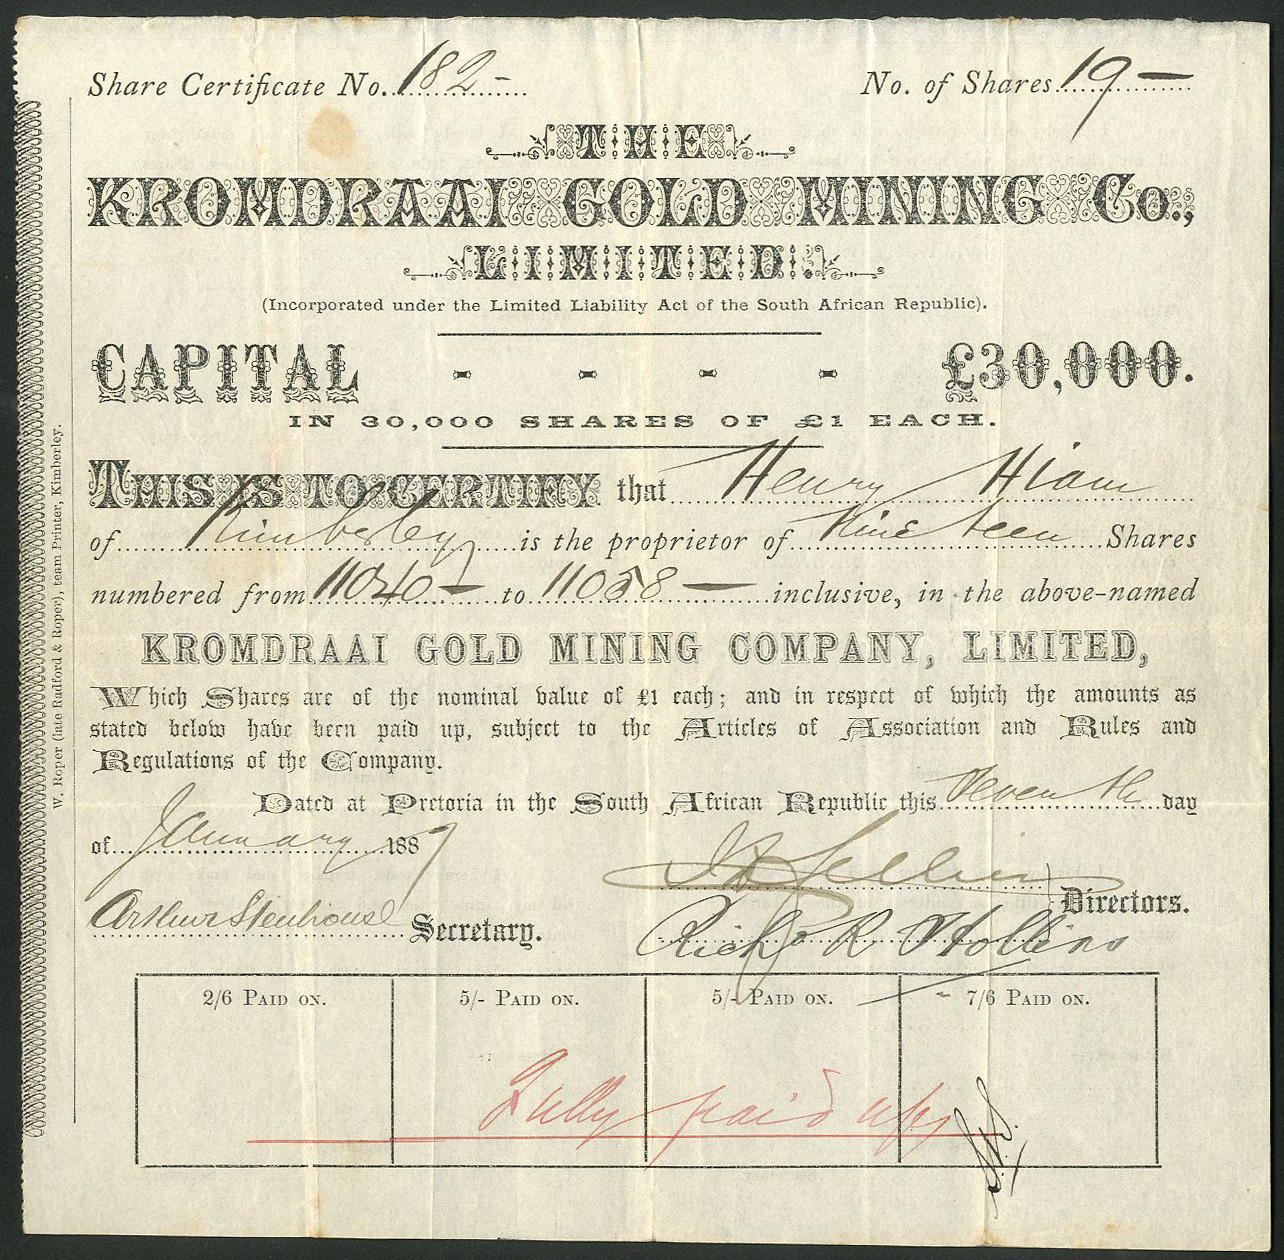 Share Certificate No. 182-
No. of Shares 19-
THE
KROMDRAAI GOLD MINING Co.,
LIMITED.
(Incorporated under the Limited Liability Act of the South African Republic).
CAPITAL - - - - £30,000.
IN 30,000 SHARES OF £1 EACH.
THIS IS TO CERTIFY that Henry Hiam
of Kimberley is the proprietor of Nineteen Shares
numbered from 11040- to 11058- inclusive, in the above-named
KROMDRAAI GOLD MINING COMPANY, LIMITED,
Which Shares are of the nominal value of £1 each; and in respect of which the amounts as
stated below have been paid up, subject to the Articles of Association and Rules and
Regulations of the Company.
Dated at Pretoria in the South African Republic this Seventh day
of January 1887
Arthur Stenhouse Secretary.
Directors.
Richd R Hollins
2/6 PAID ON. 5/- PAID ON. 5/- PAID ON. 7/6 PAID ON.
Fully paid up
W. Roper (late Radford & Roper), team Printer, Kimberley.